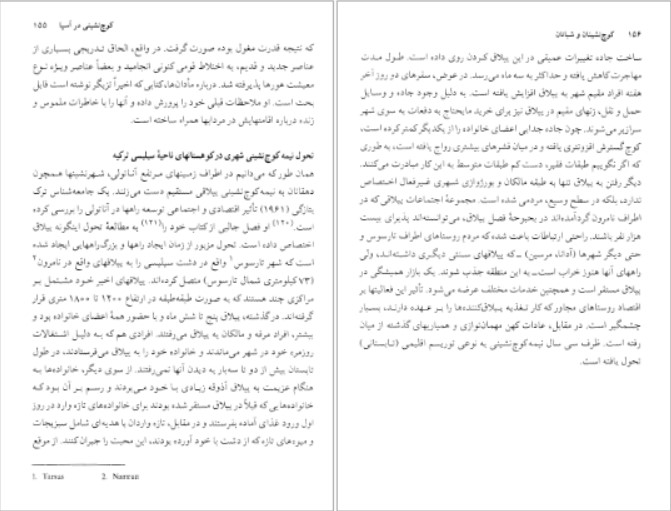 کوچ‌نشینی در آسیا ۱۵۵
که نتیجه قدرت مغول بوده صورت گرفت. در واقع، الحاق تدریجی بسیاری از
عناصر جدید و قدیم، به اختلاط قومی کنونی انجامید و بعضاً عناصر ویژه نوع
معیشت هورها پذیرفته شد. درباره مأدان‌ها، کتابی که اخیراً تزیگر نوشته است قابل
بحث است. او ملاحظات قبلی خود را پرورش داده و آنها را با خاطرات ملموس و
زنده درباره اقامتهایش در مردابها همراه ساخته است.
تحول نیمه کوچ‌نشینی شهری در کوهستانهای ناحیهٔ سیلیسی ترکیه
همان طور که می‌دانیم در اطراف زمینهای مرتفع آناتولی، شهرنشینها همچون
دهقانان به نیمه کوچ‌نشینی ییلاقی مستقیم دست می‌زنند. یک جامعه‌شناس ترک
بتازگی (۱۹۶۱) تأثیر اقتصادی و اجتماعی توسعه راهها در آناتولی را بررسی کرده
است.(۱۲۰) او فصل جالبی از کتاب خود را(۱۲۱) به مطالعهٔ تحول اینگونه ییلاق
اختصاص داده است. تحول مزبور از زمان ایجاد راهها و بزرگ‌راههایی ایجاد شده
است که شهر تارسوس۱ واقع در دشت سیلیسی را به ییلاقهای واقع در نامرون۲
(۷۳ کیلومتری شمال تارسوس) متصل کرده‌اند. ییلاقهای اخیر خود مشتمل بر
مراکزی چند هستند که به صورت طبقه‌طبقه در ارتفاع ۱۲۰۰ تا ۱۸۰۰ متری قرار
گرفته‌اند. در گذشته، ییلاق پنج تا شش ماه و با حضور همهٔ اعضای خانواده بود و
بیشتر، افراد مرفه و مالکان به ییلاق می‌رفتند. افرادی هم که به دلیل اشتغالات
روزمره خود در شهر می‌ماندند و خانواده خود را به ییلاق می‌فرستادند، در طول
تابستان بیش از دو تا سه‌بار به دیدن آنها نمی‌رفتند. از سوی دیگر، خانواده‌ها به
هنگام عزیمت به ییلاق آذوقه زیادی با خود می‌بردند و رسم بر آن بود که
خانواده‌هایی که قبلاً در ییلاق مستقر شده بودند برای خانواده‌های تازه وارد در روز
اول ورود غذای آماده بفرستند و در مقابل، تازه واردان با هدیه‌ای شامل سبزیجات
و میوه‌های تازه که از دشت با خود آورده بودند، این محبت را جبران کنند. از موقع
1. Tarsus 2. Namrun
۱۵۶ کوچ‌نشینان و شبانان
ساخت جاده تغییرات عمیقی در این ییلاق کردن روی داده است. طول مدت
مهاجرت کاهش یافته و حداکثر به سه ماه می‌رسد. در عوض، سفرهای دو روز آخر
هفته افراد مقیم شهر به ییلاق افزایش یافته است. به دلیل وجود جاده و وسایل
حمل و نقل، زنهای مقیم در ییلاق نیز برای خرید مایحتاج به دفعات به سوی شهر
سرازیر می‌شوند. چون جاده جدایی اعضای خانواده را از یکدیگر کمتر کرده است،
کوچ گسترش افزونتری یافته و در میان قشرهای بیشتری رواج یافته است، به طوری
که اگر نگوییم طبقات فقیر، دست کم طبقات متوسط به این کار مبادرت می‌کنند.
دیگر رفتن به ییلاق تنها به طبقه مالکان و بورژوازی شهری غیرفعال اختصاص
ندارد، بلکه در سطح وسیع، مردمی شده است. مجموعهٔ اجتماعات ییلاقی که در
اطراف نامرون گرد آمده‌اند در بحبوحهٔ فصل ییلاق، می‌توانسته‌اند پذیرای بیست
هزار نفر باشند. راحتی ارتباطات باعث شده که مردم روستاهای اطراف تارسوس و
حتی دیگر شهرها (آدانا، مرسین) ـ که ییلاقهای سنتی دیگری داشته‌اند، ولی
راههای آنها هنوز خراب است ـ به این منطقه جذب شوند. یک بازار همیشگی در
ییلاق مستقر است و همچنین خدمات مختلف عرضه می‌شود. تأثیر این فعالیتها بر
اقتصاد روستاهای مجاور که کار تغذیه ییلاق‌کننده‌ها را بر عهده دارند، بسیار
چشمگیر است. در مقابل، عادات کهن مهمان‌نوازی و همیاریهای گذشته از میان
رفته است. ظرف سی سال نیمه کوچ‌نشینی به نوعی توریسم اقلیمی (تابستانی)
تحول یافته است.